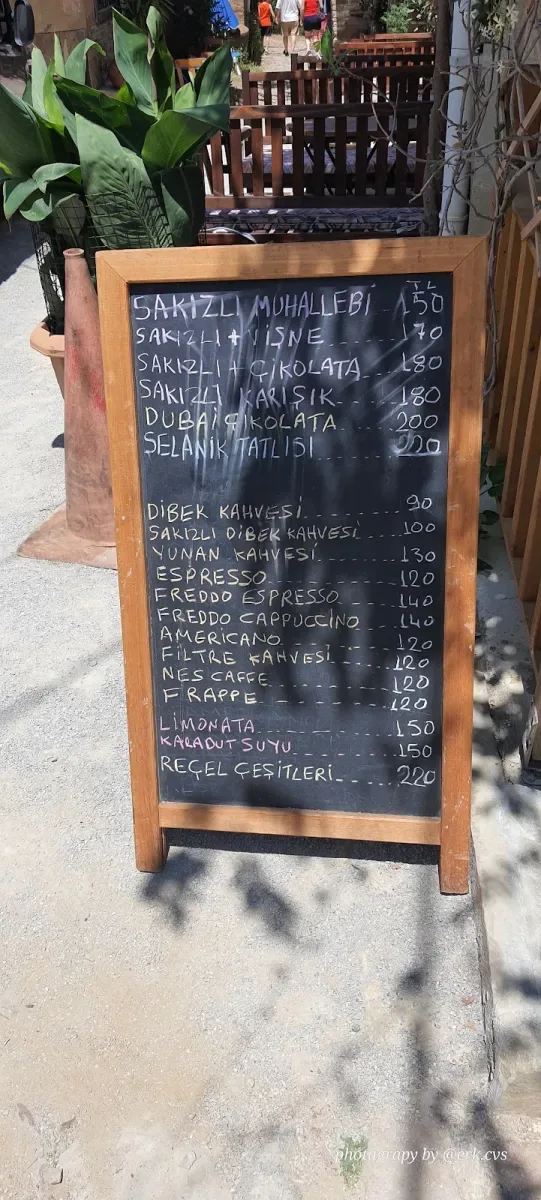 TL
SAKIZLI MUHALLEBİ 150
SAKIZLI + VİŞNE 170
SAKIZLI + ÇİKOLATA 180
SAKIZLI KARIŞIK 180
DUBAİ ÇİKOLATA 200
SELANİK TATLISI 220
DİBEK KAHVESİ 90
SAKIZLI DİBEK KAHVESİ 100
YUNAN KAHVESİ 130
ESPRESSO 120
FREDDO ESPRESSO 140
FREDDO CAPPUCCİNO 140
AMERICANO 120
FİLTRE KAHVESİ 120
NES CAFFE 120
FRAPPE 120
LİMONATA 150
KARADUT SUYU 150
REÇEL ÇEŞİTLERİ 220
photograpy by @erk.cvs